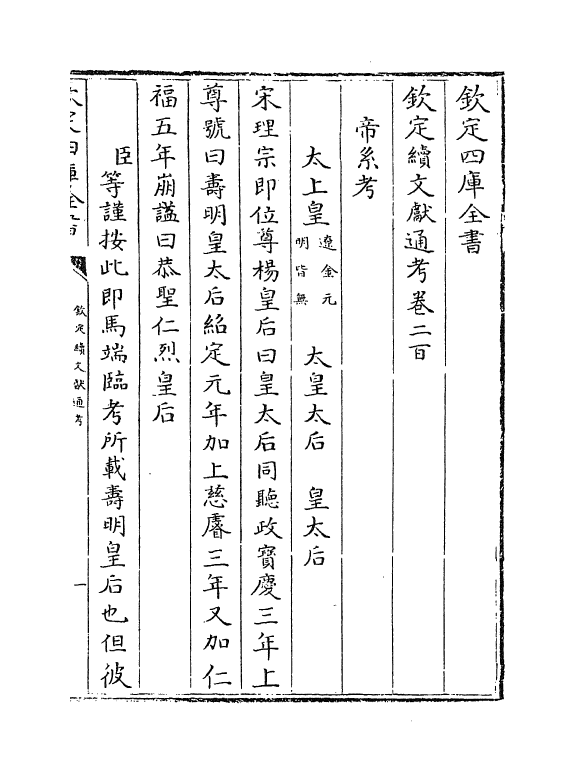 欽定四庫全書
欽定續文獻通考卷二百
帝系考
太上皇遼金元明皆無 太皇太后 皇太后
宋理宗即位尊楊皇后曰皇太后同聽政寳慶三年上
尊號曰壽明皇太后紹定元年加上慈睿三年又加仁
福五年崩諡曰恭聖仁烈皇后
臣等謹按此即馬端臨考所載壽明皇后也但彼
欽定四庫全書
欽定續文獻通考
一